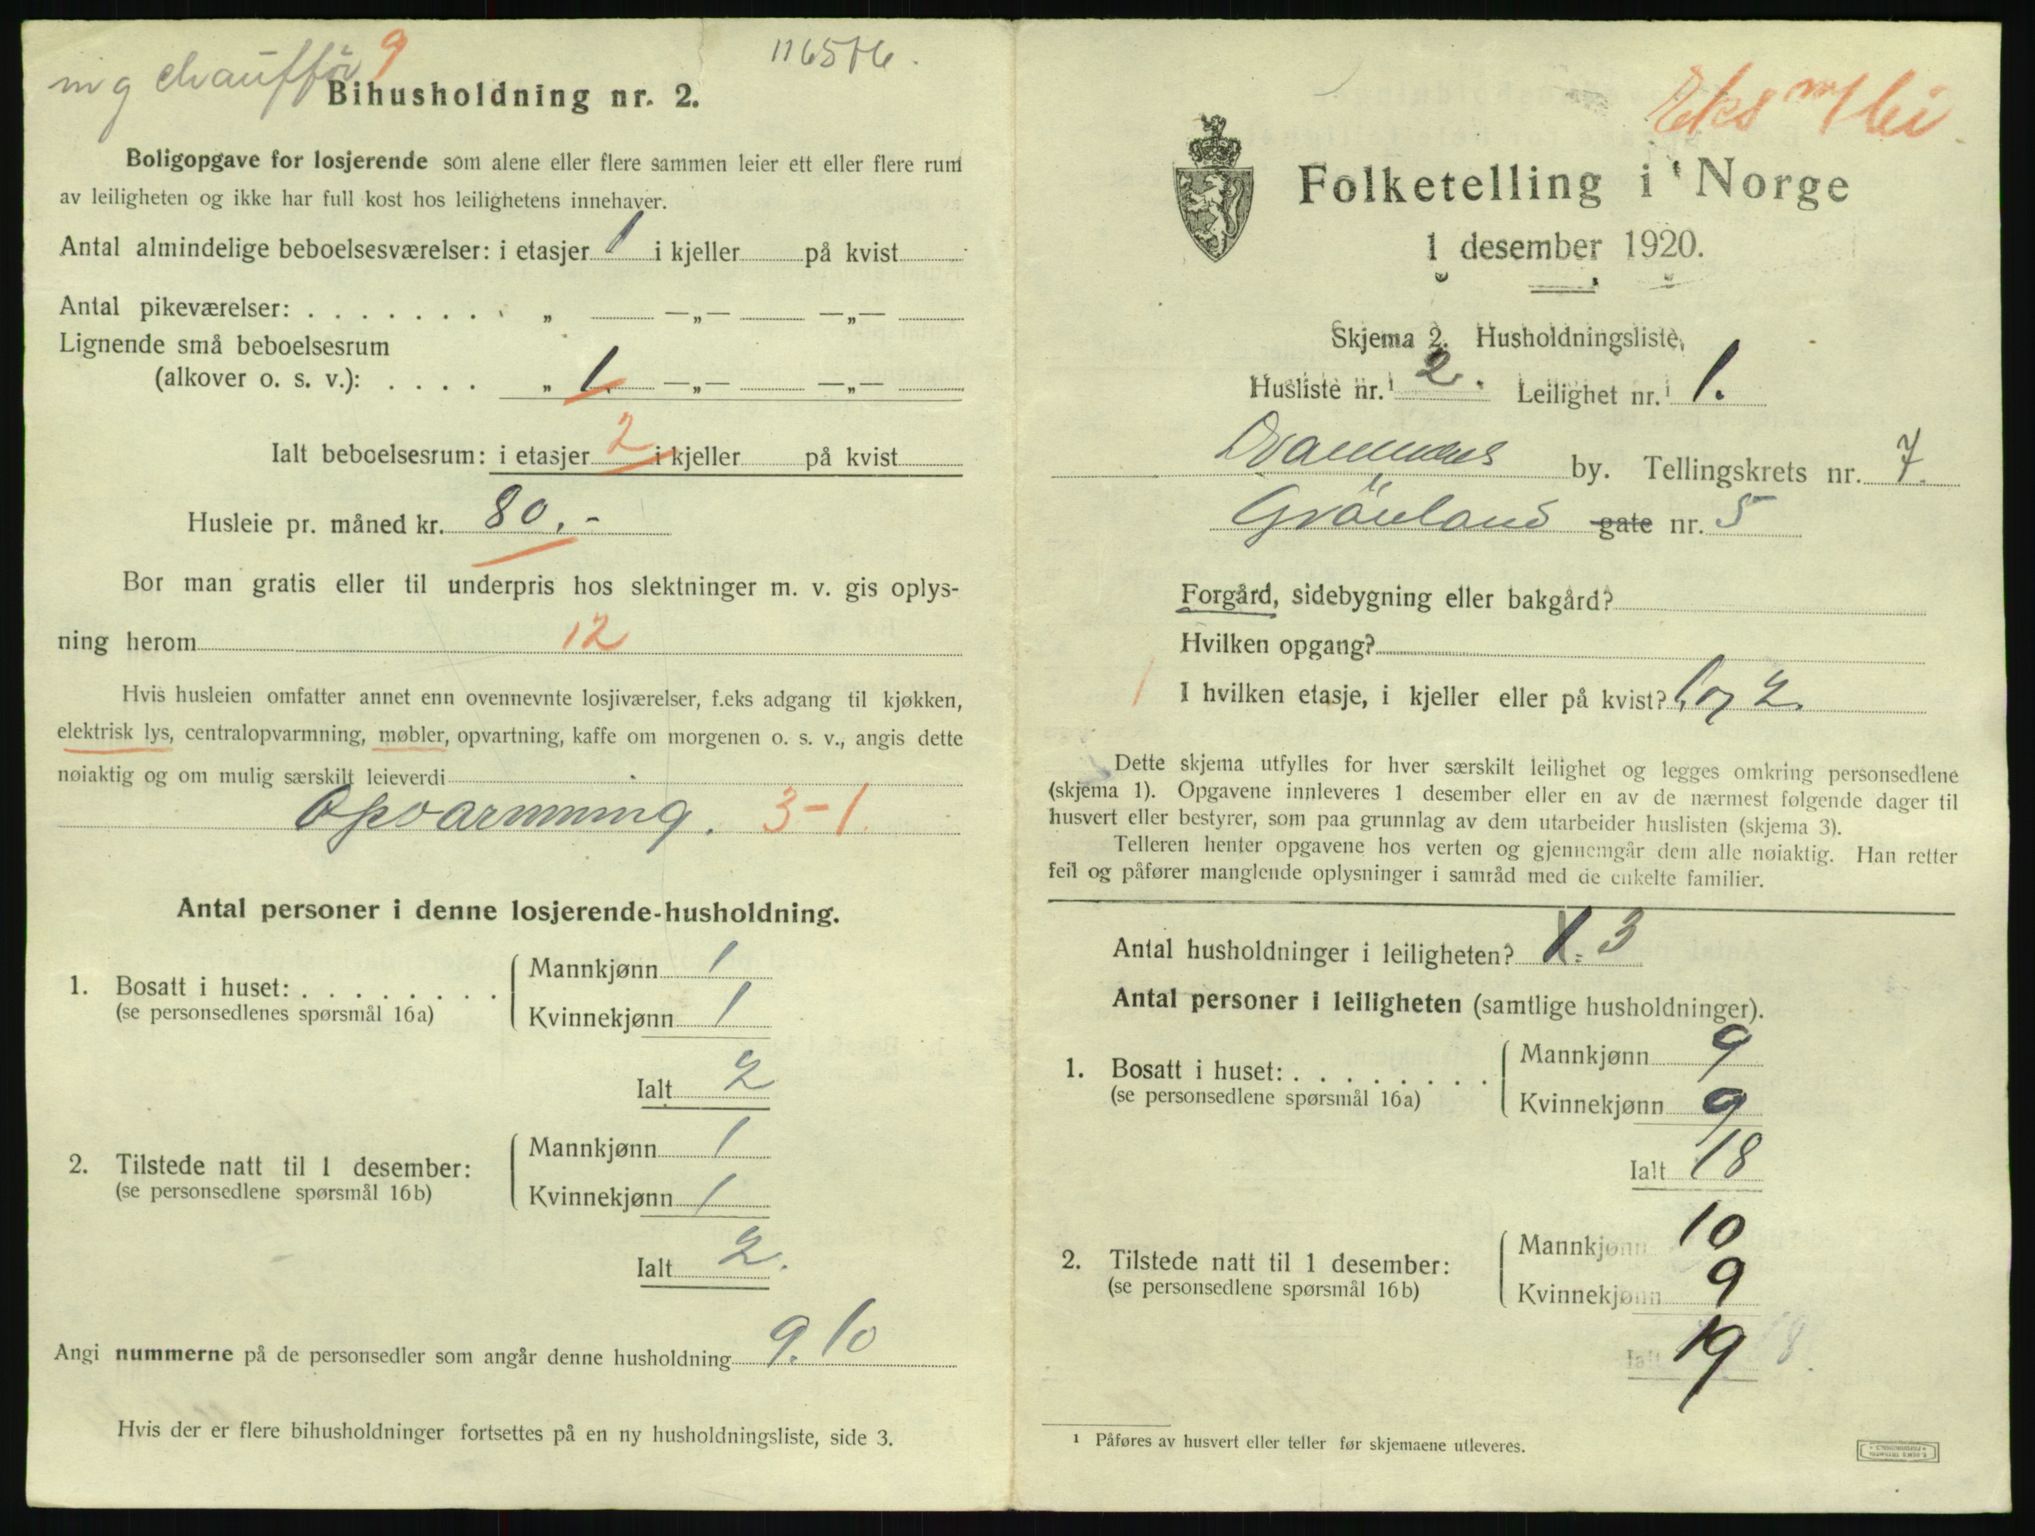 m g chaufför 9
116576.
Bihusholdning nr. 2.
Boligopgave for losjerende som alene eller flere sammen leier ett eller flere rum
av leiligheten og ikke har full kost hos leilighetens innehaver.
Antal almindelige beboelsesværelser: i etasjer 1 i kjeller på kvist
Antal pikeværelser: . . . . . . . . „ —„— —„—
Lignende små beboelsesrum
(alkover o. s. v.): . . . . „ 1. —„— —„—
Ialt beboelsesrum: i etasjer 2 i kjeller på kvist
Husleie pr. måned kr. 80.-
Bor man gratis eller til underpris hos slektninger m. v. gis oplys-
ning herom 12
Hvis husleien omfatter annet enn ovennevnte losjiværelser, f.eks adgang til kjøkken,
elektrisk lys, centralopvarmning, møbler, opvartning, kaffe om morgenen o. s. v., angis dette
nøiaktig og om mulig særskilt leieverdi
Opvarmning. 3-1.
Antal personer i denne losjerende-husholdning.
1. Bosatt i huset: . . . . . . . . Mannkjønn 1
(se personsedlenes spørsmål 16a) Kvinnekjønn 1
Ialt 2
2. Tilstede natt til 1 desember: Mannkjønn 1
(se personsedlene spørsmål 16b) Kvinnekjønn 1
Ialt 2.
Angi nummerne på de personsedler som angår denne husholdning 9. 10
Hvis der er flere bihusholdninger fortsettes på en ny husholdningsliste, side 3.
Eks
Folketelling i Norge
1 desember 1920.
Skjema 2. Husholdningsliste.
Husliste nr.¹ 2. Leilighet nr.¹ 1.
Drammens by. Tellingskrets nr. 7.
Grönland gate nr. 5
Forgård, sidebygning eller bakgård?
Hvilken opgang?
1 I hvilken etasje, i kjeller eller på kvist? 1. og 2.
Dette skjema utfylles for hver særskilt leilighet og legges omkring personsedlene
(skjema 1). Opgavene innleveres 1 desember eller en av de nærmest følgende dager til
husvert eller bestyrer, som paa grunnlag av dem utarbeider huslisten (skjema 3).
Telleren henter opgavene hos verten og gjennemgår dem alle nøiaktig. Han retter
feil og påfører manglende oplysninger i samråd med de enkelte familier.
Antal husholdninger i leiligheten? 1. 3
Antal personer i leiligheten (samtlige husholdninger).
1. Bosatt i huset: . . . . . . . . Mannkjønn 9
(se personsedlene spørsmål 16a) Kvinnekjønn 9
Ialt 18
2. Tilstede natt til 1 desember: Mannkjønn 10
(se personsedlene spørsmål 16b) Kvinnekjønn 9
Ialt 19 18.
¹ Påføres av husvert eller teller før skjemaene utleveres.